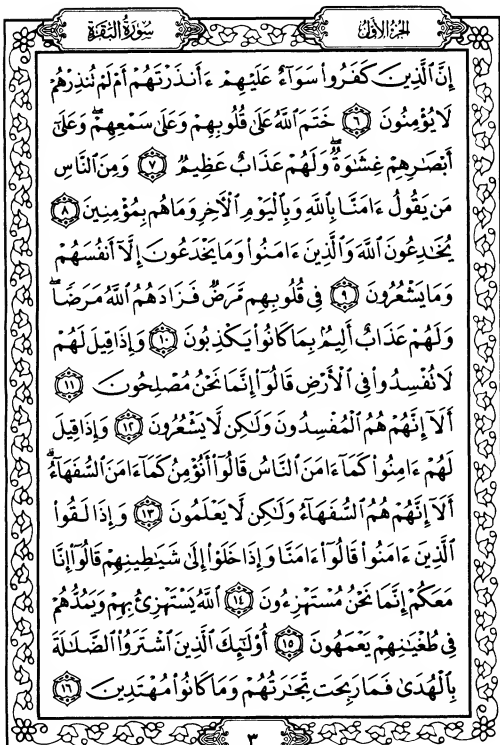 سُورَةُ البَقَرَةِ
الجُزْءُ الأَوَّلُ
إِنَّ ٱلَّذِينَ كَفَرُواْ سَوَآءٌ عَلَيْهِمْ ءَأَنذَرْتَهُمْ أَمْ لَمْ تُنذِرْهُمْ
لَا يُؤْمِنُونَ ٦ خَتَمَ ٱللَّهُ عَلَىٰ قُلُوبِهِمْ وَعَلَىٰ سَمْعِهِمْۖ وَعَلَىٰٓ
أَبْصَٰرِهِمْ غِشَٰوَةٌۖ وَلَهُمْ عَذَابٌ عَظِيمٌ ٧ وَمِنَ ٱلنَّاسِ
مَن يَقُولُ ءَامَنَّا بِٱللَّهِ وَبِٱلْيَوْمِ ٱلْأَخِرِ وَمَا هُم بِمُؤْمِنِينَ ٨
يُخَٰدِعُونَ ٱللَّهَ وَٱلَّذِينَ ءَامَنُواْ وَمَا يَخْدَعُونَ إِلَّآ أَنفُسَهُمْ
وَمَا يَشْعُرُونَ ٩ فِى قُلُوبِهِم مَّرَضٌ فَزَادَهُمُ ٱللَّهُ مَرَضًاۖ
وَلَهُمْ عَذَابٌ أَلِيمٌۢ بِمَا كَانُواْ يَكْذِبُونَ ١٠ وَإِذَا قِيلَ لَهُمْ
لَا تُفْسِدُواْ فِى ٱلْأَرْضِ قَالُوٓاْ إِنَّمَا نَحْنُ مُصْلِحُونَ ١١
أَلَآ إِنَّهُمْ هُمُ ٱلْمُفْسِدُونَ وَلَٰكِن لَّا يَشْعُرُونَ ١٢ وَإِذَا قِيلَ
لَهُمْ ءَامِنُواْ كَمَآ ءَامَنَ ٱلنَّاسُ قَالُوٓاْ أَنُؤْمِنُ كَمَآ ءَامَنَ ٱلسُّفَهَآءُۗ
أَلَآ إِنَّهُمْ هُمُ ٱلسُّفَهَآءُ وَلَٰكِن لَّا يَعْلَمُونَ ١٣ وَإِذَا لَقُواْ
ٱلَّذِينَ ءَامَنُواْ قَالُوٓاْ ءَامَنَّا وَإِذَا خَلَوْاْ إِلَىٰ شَيَٰطِينِهِمْ قَالُوٓاْ إِنَّا
مَعَكُمْ إِنَّمَا نَحْنُ مُسْتَهْزِءُونَ ١٤ ٱللَّهُ يَسْتَهْزِئُ بِهِمْ وَيَمُدُّهُمْ
فِى طُغْيَٰنِهِمْ يَعْمَهُونَ ١٥ أُوْلَٰٓئِكَ ٱلَّذِينَ ٱشْتَرَوُاْ ٱلضَّلَٰلَةَ
بِٱلْهُدَىٰ فَمَا رَبِحَت تِّجَٰرَتُهُمْ وَمَا كَانُواْ مُهْتَدِينَ ١٦
٣